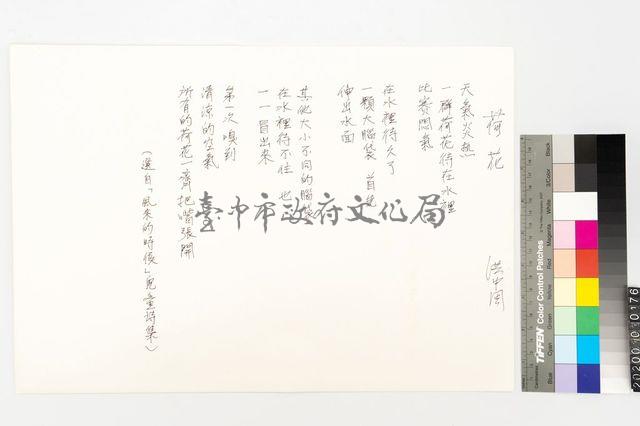 荷花
洪中周
天氣炎熱
一群荷花待在水裡
比賽悶氣
在水裡待久了
一顆大腦袋 首先
伸出水面
其他大小不同的腦袋
在水裡待不住 也
一一冒出來
第一次嗅到
清涼的空氣
所有的荷花一齊把嘴張開
（選自「風來的時候」兒童詩集）
臺中市政府文化局
Black
3/Color
White
Magenta
Red
Yellow
Green
Cyan
Blue
TIFFEN Color Control Patches
20200010176